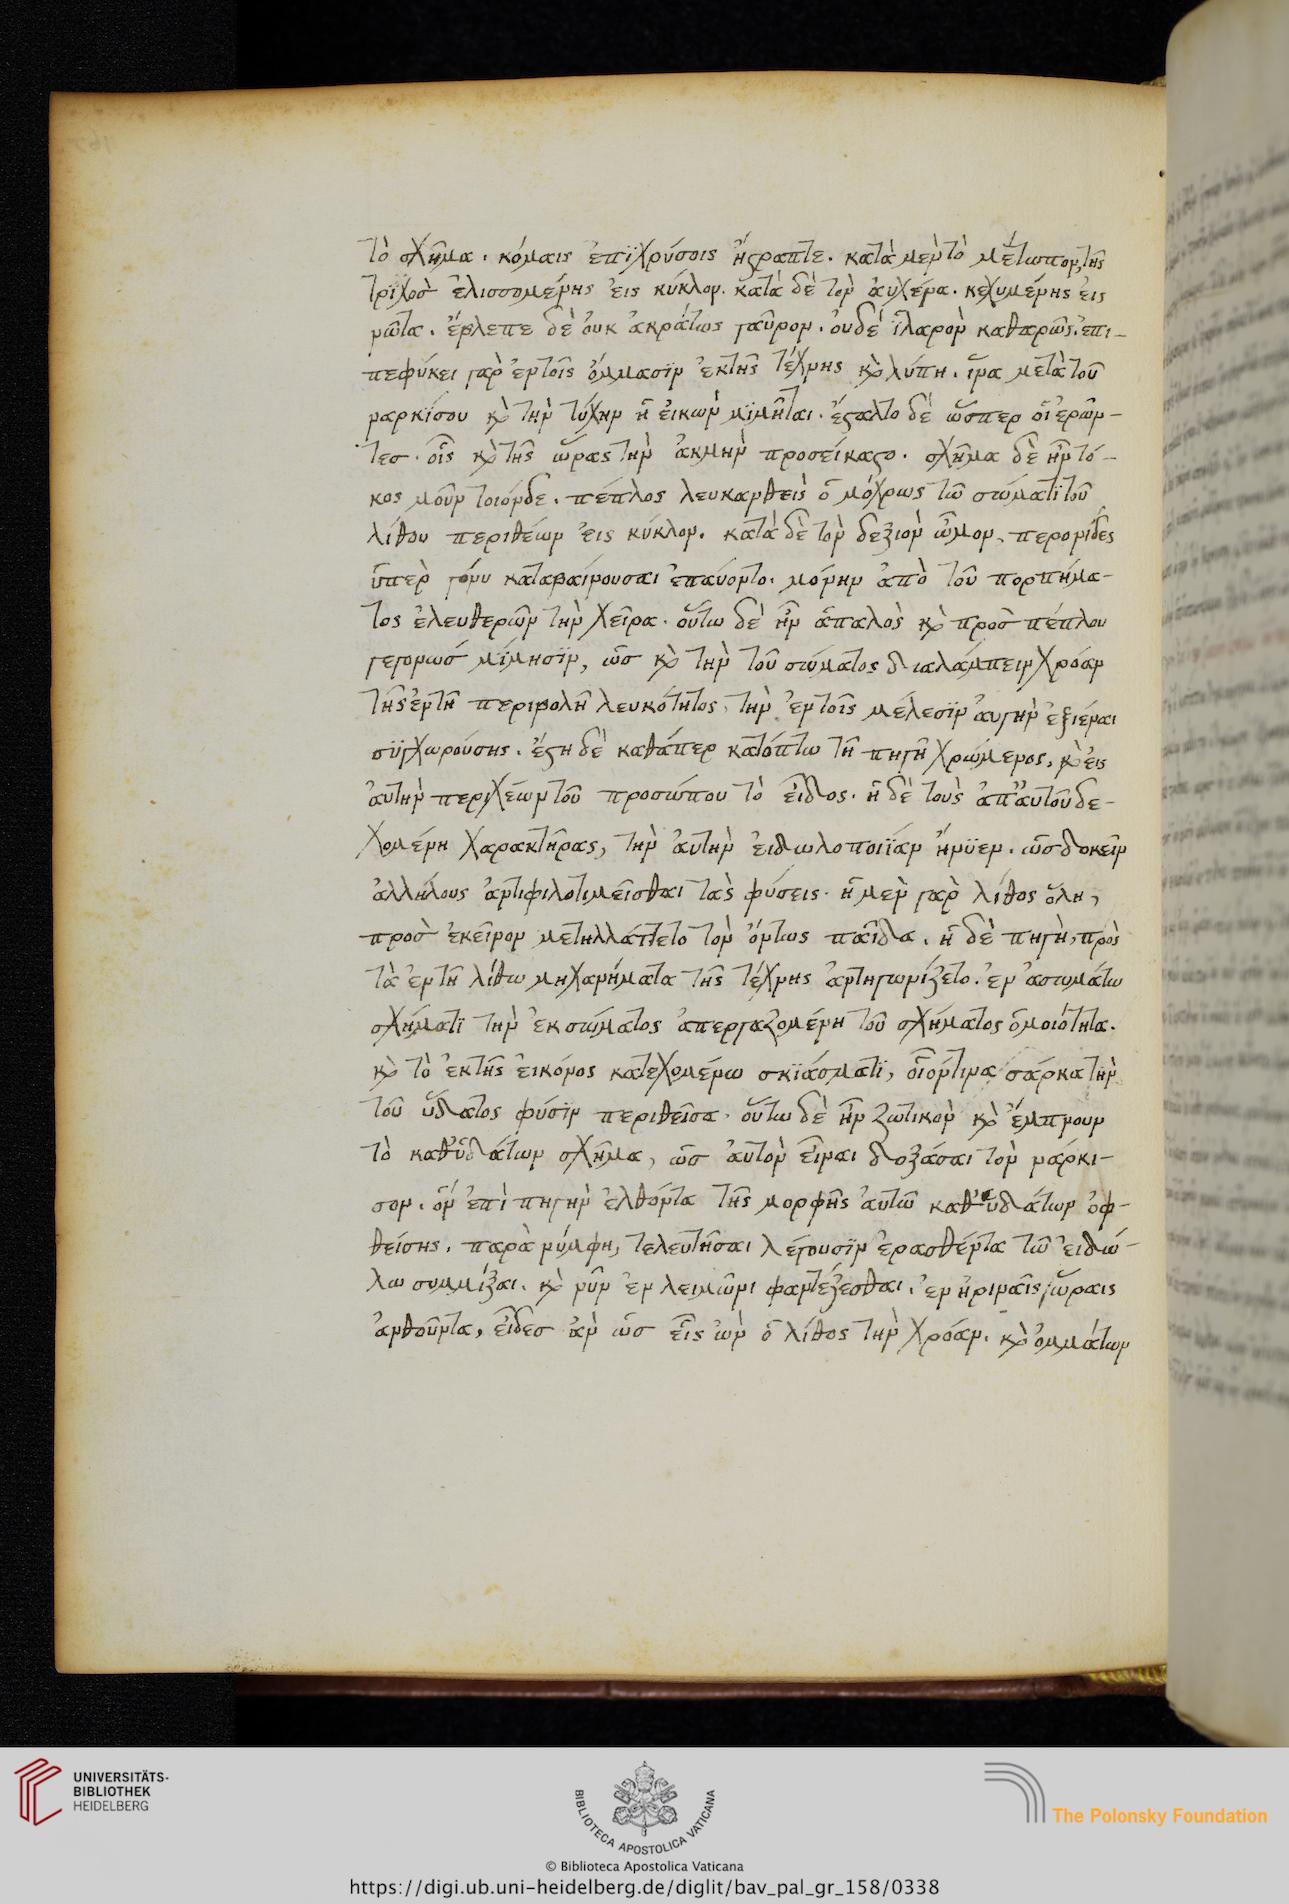 τὸ σχῆμα. κόμαις ἐπϊχρύσοις ἤστραπτε. κατὰ μὲν τὸ μέτωπον, τῆς
τρϊχὸσ ἐλισσομένης εἰς κύκλον. κατὰ δὲ τὸν ἀυχένα. κεχυμένης εἰς
νῶτα. ἔβλεπε δὲ ὀυκ ἀκράτως γαῦρον. ὀυδὲ ἱλαρὸν καθαρῶς. ἐπι-
πεφύκει γὰρ ἐν τοῖς ὄμμασϊν ἐκ τῆς τέχνης κὶ λύπη. ἵνα μετὰ τοῦ
ναρκίσου κὶ τὴν τύχην ἡ ἐικὼν μϊμῆται. ἔσταλτο δὲ ὥσπερ οἱ ἐρῶν-
τεσ. οἷς κὶ τῆς ὥρας τὴν ἀκμὴν προσείκαστο. σχῆμα δὲ ἦν τό-
κος μοῦν τοιόνδε. πέπλος λευκανθεὶς ὁ μόχρως τῶ σώματϊ τοῦ
λίθου περιθέων εἰς κύκλον. κατὰ δὲ τὸν δεξιὸν ὦμον, περονίδες
ὑπὲρ γόνυ καταβαίνουσαι ἐπαύοντο. μόνην ἀπὸ τοῦ πορπήμα-
τος ἐλευθερῶν τὴν χεῖρα. οὕτω δὲ ἦν ἁπαλὸς κὶ προσ πέπλου
γεγονωσ μίμησϊν, ὡσ κὶ τὴν τοῦ σώματος διαλάμπειν χρόαν
τῆς ἐν τῆ περιβολῆ λευκότητος, τὴν ἐν τοῖς μέλεσϊν ἀυγὴν ἐξιέναι
συγχωρούσης. ἔστη δὲ καθάπερ κατόπτω τῆ πηγῆ χρώμενος, κὶ εἰς
ἀυτὴν περιχέων τοῦ προσώπου τὸ εἶδος. ἡ δὲ τοὺς ἀπ' ἀυτοῦ δε-
χομένη χαρακτῆρας, τὴν ἀυτὴν ἐιδωλοποιϊαν ἤνϋεν. ὡσ δοκεῖν
ἀλλήλους ἀντιφιλοτιμεῖσθαι τὰς φύσεις. ἡ μὲν γὰρ λίθος ὅλη,
προσ ἐκεῖνον μετηλλάττετο τὸν ὄντως παῖδα. ἡ δὲ πηγὴ, πρὸς
τὰ ἐν τῆ λίθω μηχανήματα τῆς τέχνης ἀντηγωνίζετο. ἐν ἀσωμάτω
σχήματϊ τὴν ἐκ σώματος ἀπεργαζομένη τοῦ σχήματος ὁμοιότητα.
κὶ τὸ ἐκ τῆς ἐικόνος κατεχομένω σκϊάσματϊ, οἷόν τινα σάρκα τὴν
τοῦ ὕδατος φύσϊν περιθεῖσα. οὕτω δὲ ἦν ζωτικὸν κὶ ἔμπνουν
τὸ καθ' ὑδάτων σχῆμα, ὡσ ἀυτὸν εἶναι δοξάσαι τὸν νάρκι-
σον. ὃν ἐπὶ πηγὴν ἐλθόντα τῆς μορφῆς ἀυτῶ καθ' ὑδάτων ὀφ-
θείσης, παρὰ νύμφη, τελευτῆσαι λέγουσϊν ἐρασθέντα τῶ εἰδώ-
λω συμμίξαι. κὶ νῦν ἐν λειμῶνι φαντέζεσθαι. ἐν ἠριναῖς, ὥραις
ἀνθοῦντα, εἶδεσ ἀν ὡσ εἷς ὢν ὁ λίθος τὴν χρόαν. κὶ ὀμμάτων
UNIVERSITÄTS-
BIBLIOTHEK
HEIDELBERG
BIBLIOTECA APOSTOLICA VATICANA
The Polonsky Foundation
© Biblioteca Apostolica Vaticana
https://digi.ub.uni-heidelberg.de/diglit/bav_pal_gr_158/0338